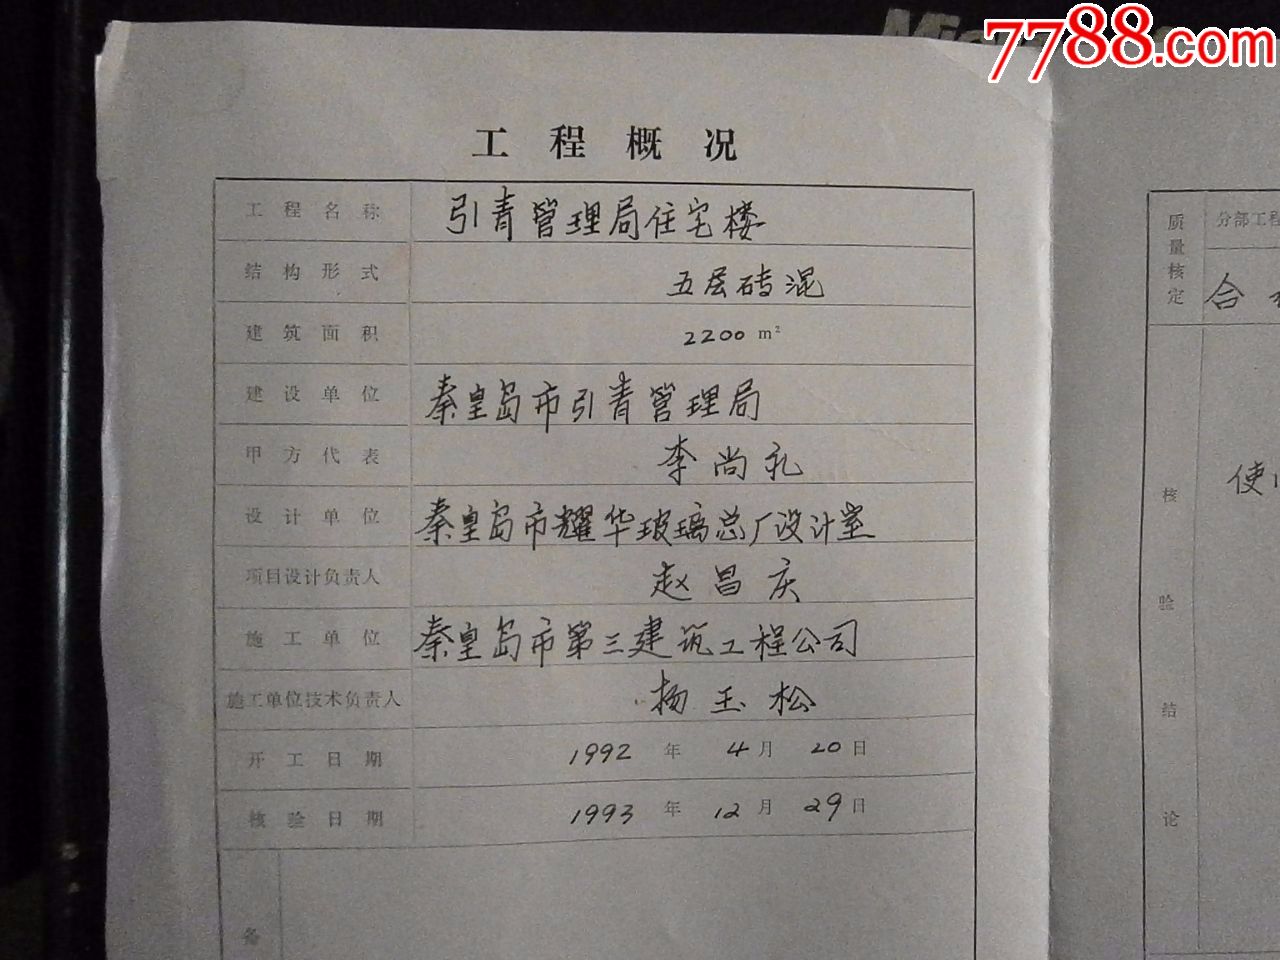 7788.com
工程概况
工程名称 引青管理局住宅楼
结构形式 五层砖混
建筑面积 2200 m²
建设单位 秦皇岛市引青管理局
甲方代表 李尚礼
设计单位 秦皇岛市耀华玻璃总厂设计室
项目设计负责人 赵昌庆
施工单位 秦皇岛市第三建筑工程公司
施工单位技术负责人 杨玉松
开工日期 1992 年 4 月 20 日
核验日期 1993 年 12 月 29 日
备
质量核定
分部工程
合
核验结论
使